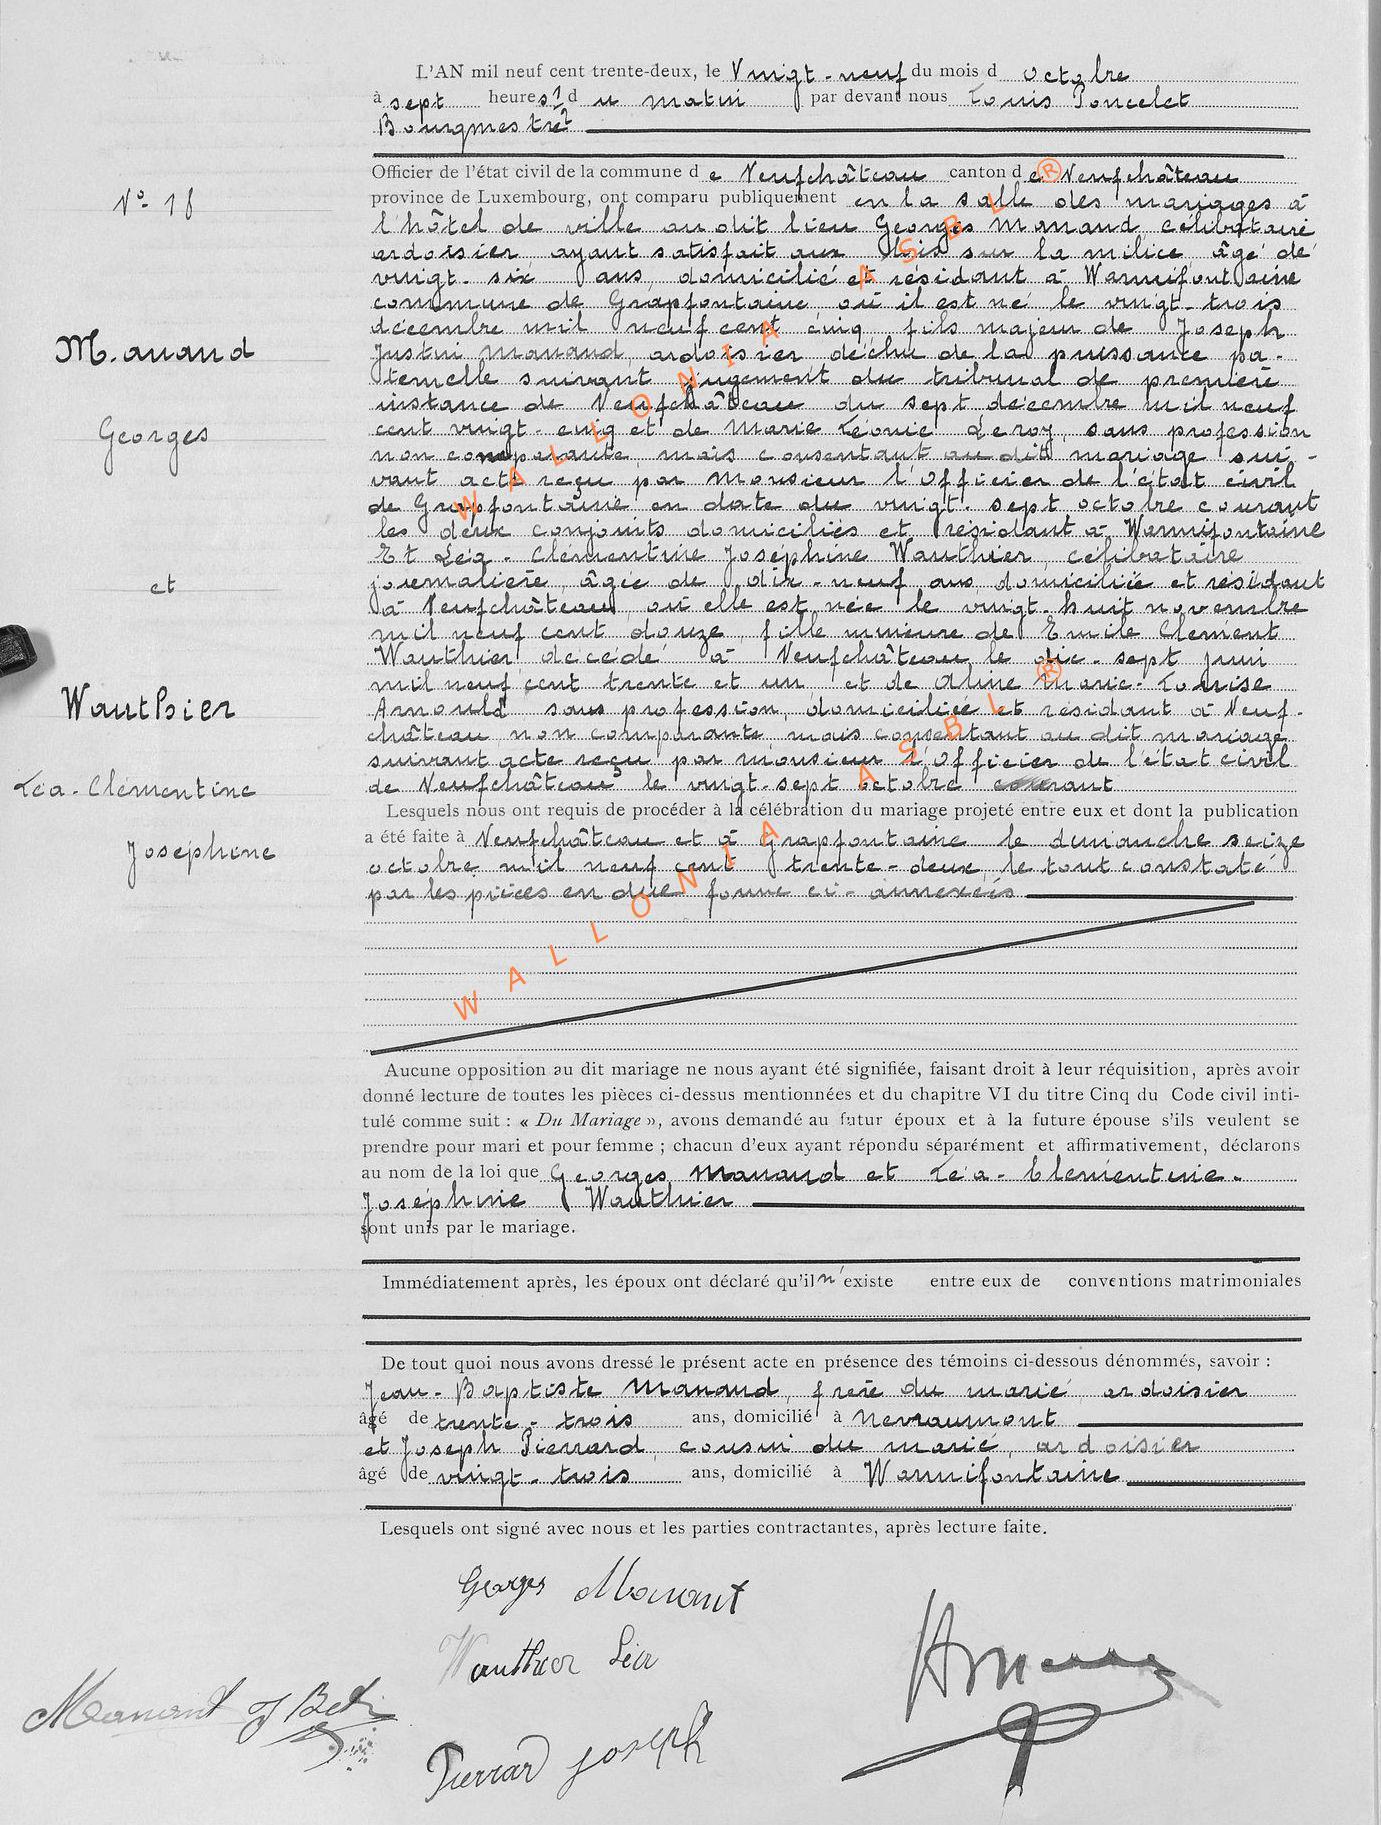 L'AN mil neuf cent trente-deux, le Vingt-neuf du mois d octobre
à sept heures d u matin par devant nous Louis Poncelet
Bourgmestre
Officier de l'état civil de la commune d e Neufchâteau canton d e Neufchâteau
province de Luxembourg, ont comparu publiquement en la salle des mariages à
l'hôtel de ville au dit lieu Georges Manand, célibataire
ardoisier ayant satisfait aux lois sur la milice âgé de
vingt-six ans, domicilié et résidant à Warmifontaine
commune de Grapfontaine où il est né le vingt-trois
décembre mil neuf cent cinq, fils majeur de Joseph
Justin Manand, ardoisier déchu de la puissance pa-
ternelle suivant jugement du tribunal de première
instance de Neufchâteau du sept décembre mil neuf
cent vingt-cinq et de Marie Léonie Leroy, sans profession
non comparante, mais consentant au dit mariage sui-
vant acte reçu par Monsieur l'Officier de l'état civil
de Grapfontaine en date du vingt-sept octobre courant
les deux conjoints domiciliés et résidant à Warmifontaine
Et Léa-Clémentine Joséphine Wauthier, célibataire
journalière, âgée de dix-neuf ans, domiciliée et résidant
à Neufchâteau, où elle est née le vingt-huit novembre
mil neuf cent douze, fille mineure de Emile Clément
Wauthier décédé à Neufchâteau le dix-sept juin
mil neuf cent trente et un et de Aline Marie-Louise
Arnould sans profession, domiciliée et résidant à Neuf-
château, non comparante mais consentant au dit mariage
suivant acte reçu par monsieur l'Officier de l'état civil
de Neufchâteau le vingt-sept octobre courant
Lesquels nous ont requis de procéder à la célébration du mariage projeté entre eux et dont la publication
a été faite à Neufchâteau et à Grapfontaine le dimanche seize
octobre mil neuf cent trente-deux, le tout constaté
par les pièces en due forme ci-annexées
Aucune opposition au dit mariage ne nous ayant été signifiée, faisant droit à leur réquisition, après avoir
donné lecture de toutes les pièces ci-dessus mentionnées et du chapitre VI du titre Cinq du Code civil inti-
tulé comme suit : « Du Mariage », avons demandé au futur époux et à la future épouse s'ils veulent se
prendre pour mari et pour femme ; chacun d'eux ayant répondu séparément et affirmativement, déclarons
au nom de la loi que Georges Manand et Léa-Clémentine-
Joséphine Wauthier
sont unis par le mariage.
Immédiatement après, les époux ont déclaré qu'il n'existe entre eux de conventions matrimoniales
De tout quoi nous avons dressé le présent acte en présence des témoins ci-dessous dénommés, savoir :
Jean-Baptiste Manand, frère du marié ardoisier
âgé de trente-trois ans, domicilié à Nevraumont
et Joseph Pierrard, cousin du marié, ardoisier
âgé de vingt-trois ans, domicilié à Warmifontaine
Lesquels ont signé avec nous et les parties contractantes, après lecture faite.
No 18
Manand
Georges
et
Wauthier
Léa-Clémentine
Joséphine
Georges Manant
Wauthier Léa
Manant J Bte
Pierrard Joseph
WALLONIA ASBL ®
WALLONIA ASBL ®